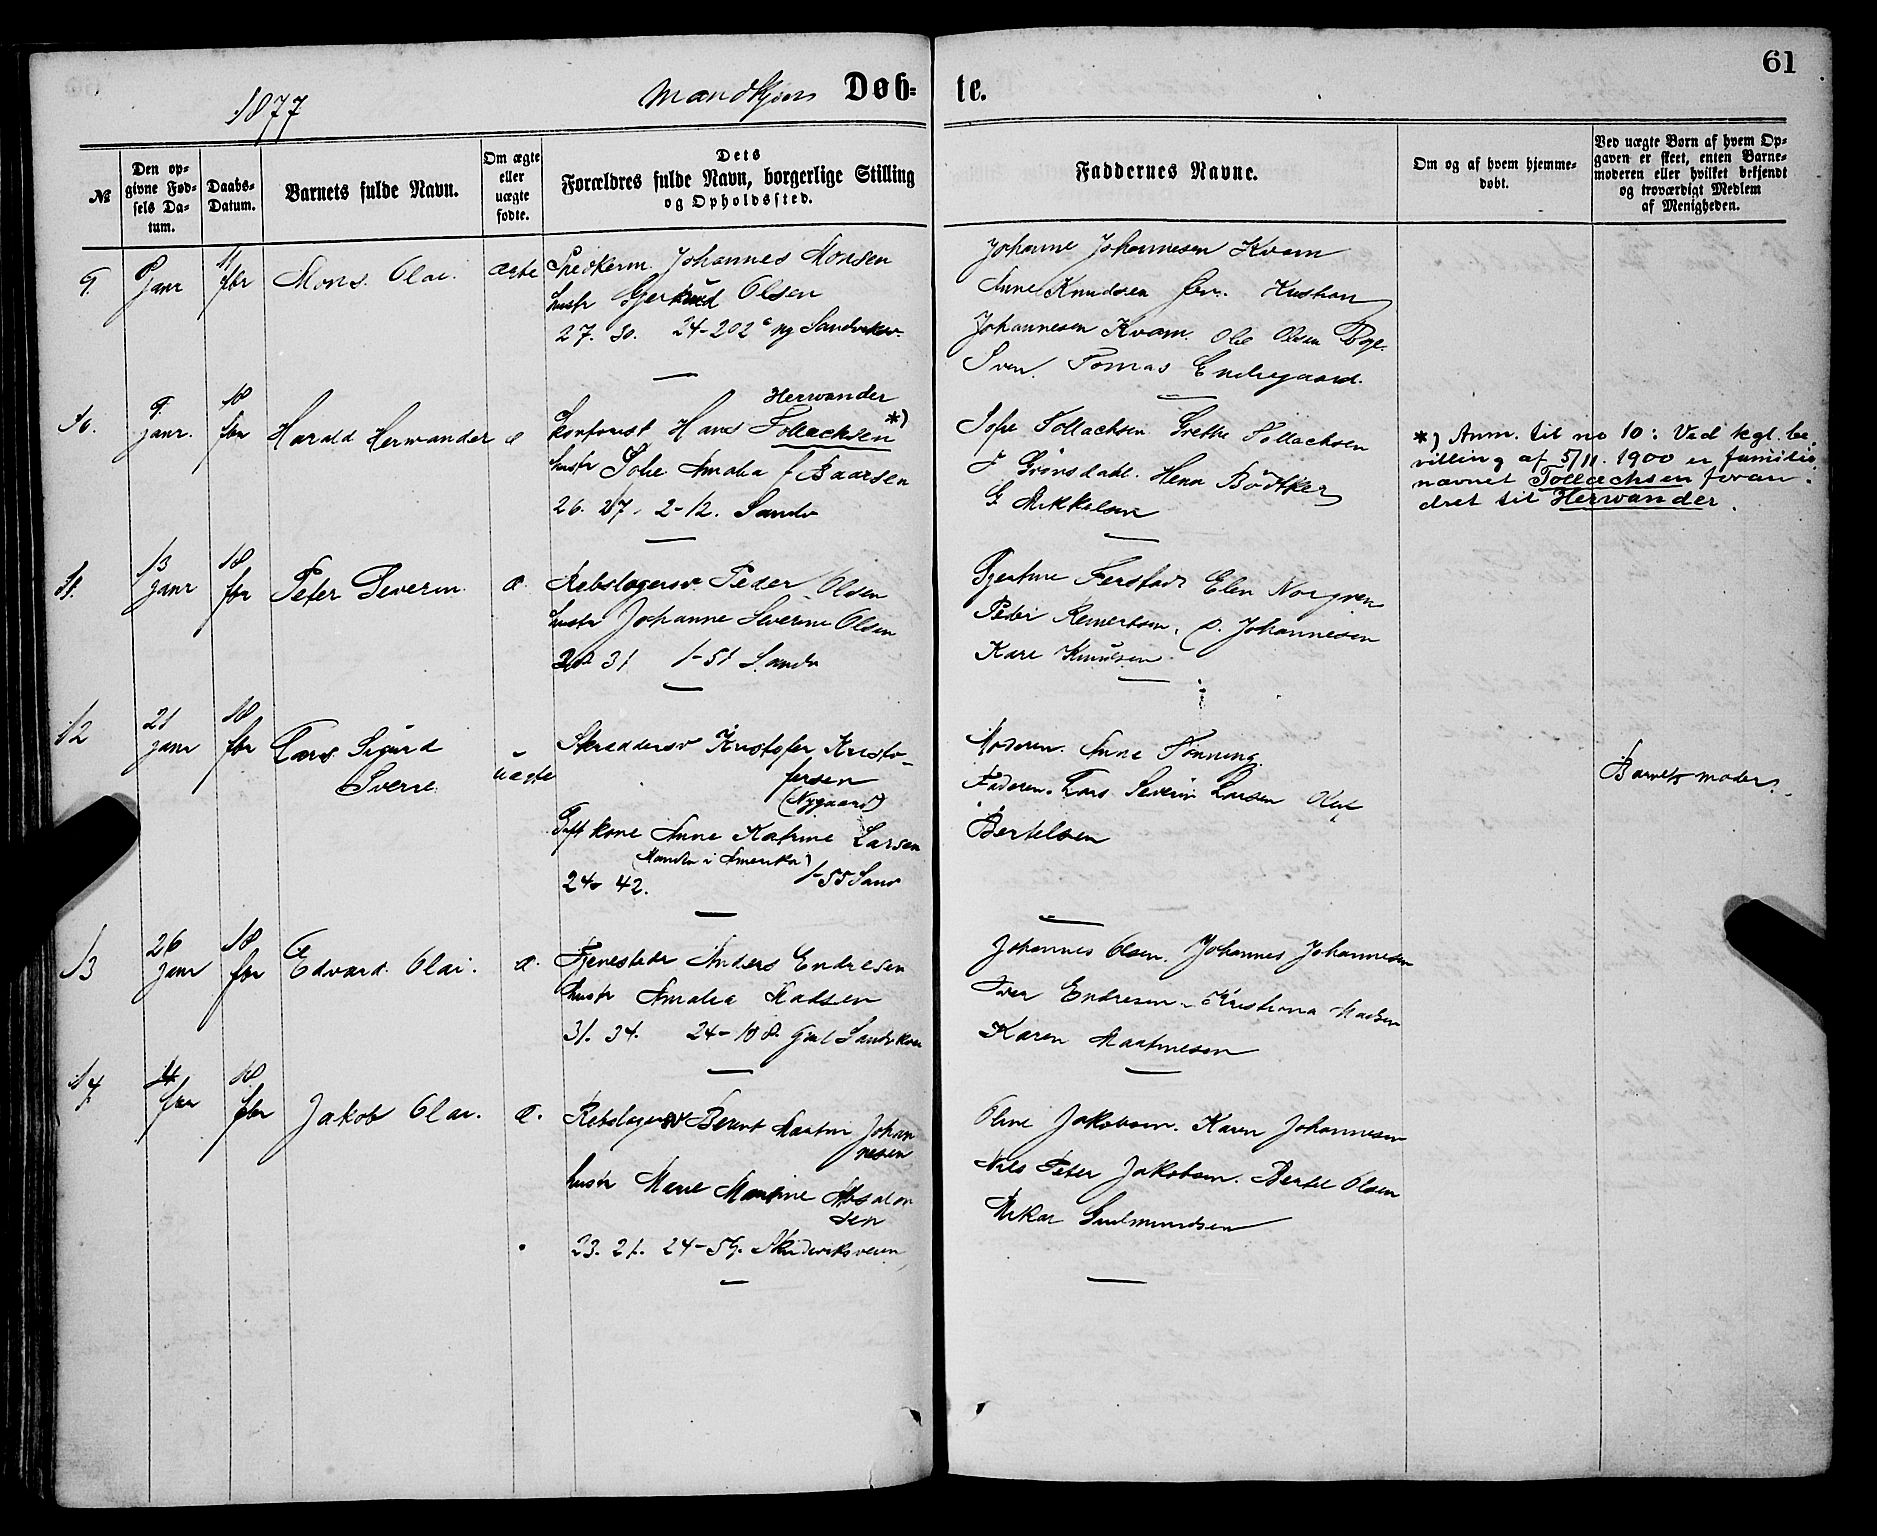 61
1877
Mandkjøn Døb=te.
№
Den op-
givne Fød-
sels Da-
tum.
Daabs-
Datum.
Barnets fulde Navn.
Om ægte
eller
uægte
fødte.
Dets
Forældres fulde Navn, borgerlige Stilling
og Opholdssted.
Faddernes Navne.
Om og af hvem hjemme-
døbt.
Ved uægte Børn af hvem Op-
gaven er skeet, enten Barne-
moderen eller hvilket bekjendt
og troværdigt Medlem
af Menigheden.
9.
9 janr
11 fbr
Mons Olai.
ægte
Johannes Monsen
hustr Gjertrud Olsen
27. 30. 24-202 ny Sandviksv.
Johanne Johannesen Kvam
Anne Knudsen
Johannesen Kvam. Ole Olsen
Tomas Endregaard.
10.
9. janr.
18 fbr
Harald Herwander
æ
Herwander
Hans Tollachsen *)
hustr Sofie Amalia f Baarsen
26. 27. 2-12. Sandv
Sofie Tollachsen Grethe Tollachsen
J Grönsdahl. Henr Bödtker
G Mikkelsen
*) Anm. til no 10: Ved kgl. be-
villing af 5/11. 1900 er familie-
navnet Tollachsen foran-
dret til Herwander.
11.
13 janr
18 fbr
Peter Severin
æ.
Rebslagersv Peder Olsen
hustr Johanne Severine Olsen
31 1-51 Sandv
Elen Norgren
Peder Reinertsen. O. Johannesen
Kari Knudsen
12
21 janr
18 fbr
Lars Sigurd
Sverre
uægte
Skreddersv Kristofer Kristo-
fersen
(Nygaard)
Gift kone Anne Katrine Larsen
(Manden i Amerika)
24- 42. 1-55 Sandv
Moderen. Anne Tonning.
Faderen. Lars Severin Larsen
Bertelsen
Barnets moder.
13
26 janr
18 fbr
Edvard Olai.
æ.
Tjenestedr Anders Endresen
hustr Amalia Madsen
31. 34. 24-108. Gml Sandvikvei
Johannes Olsen. Johannes Johannesen
Iver Endresen. Kristiana Madsen
Karen Martinesen
14
4 fbr
18 fbr
Jakob Olai.
æ.
Rebslagersv Berent Martin Johan
nesen
hustr Marie Martine Absalon
sen
23. 21. 24-59. Skudeviksveien
Oline Jakobsen. Karen Johannesen
Nils Peter Jakobsen. Bertel Olsen
Mikal Gudmundsen